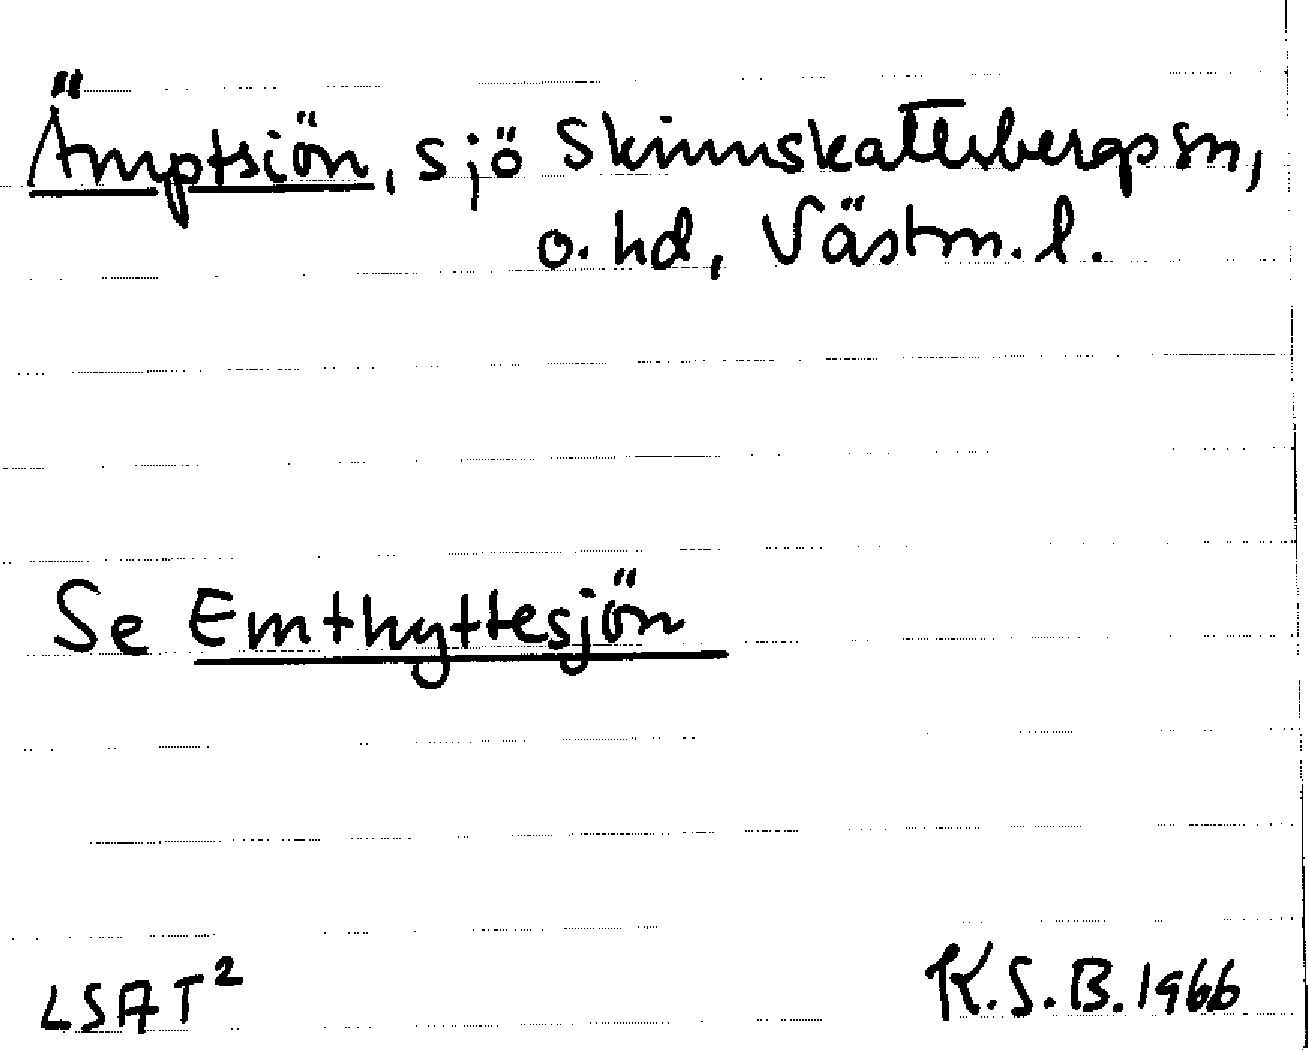 Ämptsiön, sjö Skinnskattebergs sn,
o. hd, Västm. l.
Se Emthyttesjön
LSA T²
K.S.B. 1966